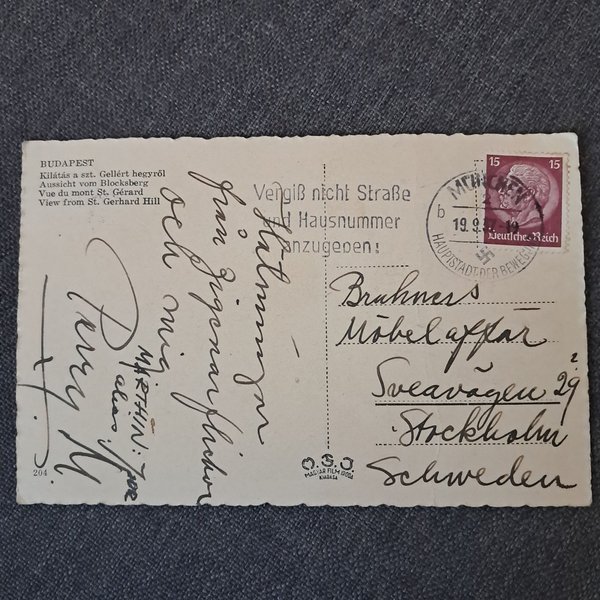 BUDAPEST
Kilátás a szt. Gellért hegyről
Aussicht vom Blocksberg
Vue du mont St. Gérard
View from St. Gerhard Hill
Vergiß nicht Straße
und Hausnummer
anzugeben!
MÜNCHEN
2
b
19.9.
HAUPTSTADT DER BEWEG
15 15
Deutsches Reich
Hälsningar
från
och mig
Perry
MARTHIN
alias
Bruhners
Möbelaffär
Sveavägen 29
Stockholm
Schweden
O.G.J.
MAGYAR FILM IRODA
KIADÁSA
204